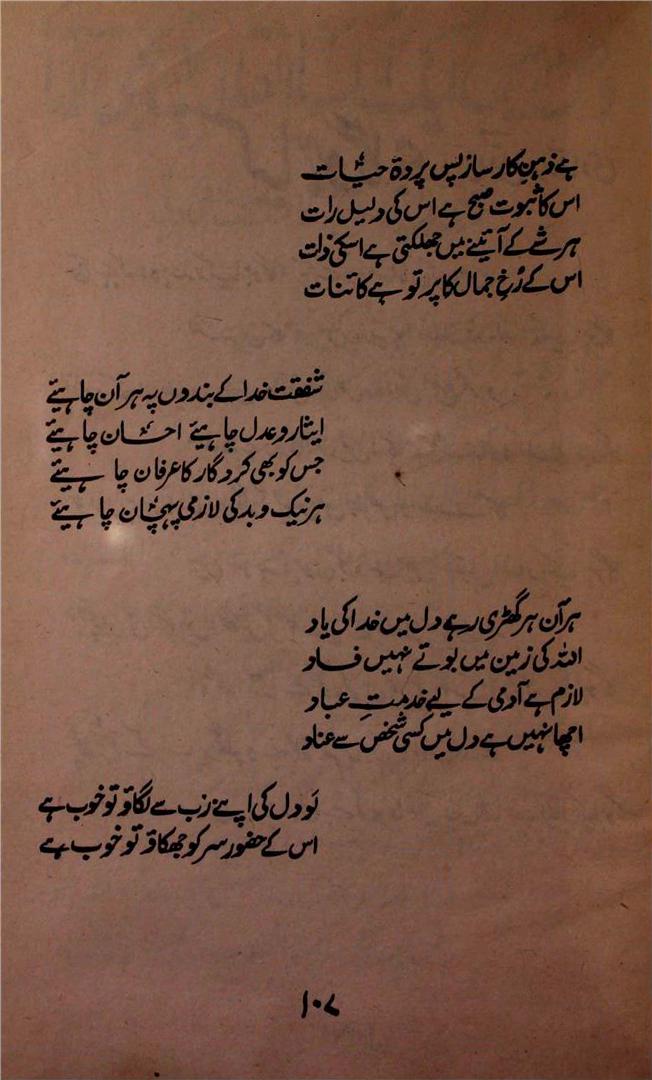 ہے ذہنِ کار ساز پس پردۂ حیات
اس کا ثبوت صبح ہے اس کی دلیل رات
ہر شے کے آئینے میں جھلکتی ہے اسکی ذات
اس کے رُخِ جمال کا پرتو ہے کائنات
شفقت خدا کے بندوں پہ ہر آن چاہیئے
ایثار و عدل چاہیئے احسان چاہیئے
جس کو بھی کردگار کا عرفان چاہیئے
ہر نیک و بد کی لازمی پہچان چاہیئے
ہر آن ہر گھڑی رہے دل میں خدا کی یاد
اللہ کی زمین میں بوتے نہیں فساد
لازم ہے آدمی کے لیے خدمتِ عباد
اچھا نہیں ہے دل میں کسی شخص سے عناد
لَو دل کی اپنے رَب سے لگاؤ تو خوب ہے
اس کے حضور سر کو جھکاؤ تو خوب ہے
۱۰۷